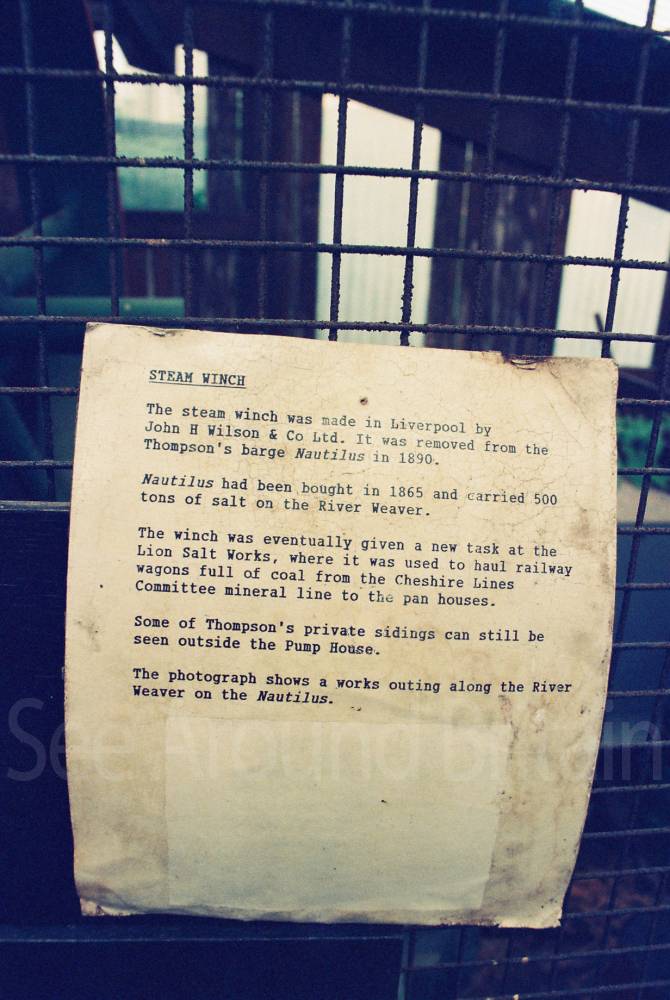 STEAM WINCH
The steam winch was made in Liverpool by
John H Wilson & Co Ltd. It was removed from the
Thompson's barge Nautilus in 1890.
Nautilus had been bought in 1865 and carried 500
tons of salt on the River Weaver.
The winch was eventually given a new task at the
Lion Salt Works, where it was used to haul railway
wagons full of coal from the Cheshire Lines
Committee mineral line to the pan houses.
Some of Thompson's private sidings can still be
seen outside the Pump House.
The photograph shows a works outing along the River
Weaver on the Nautilus.
See Around Britain